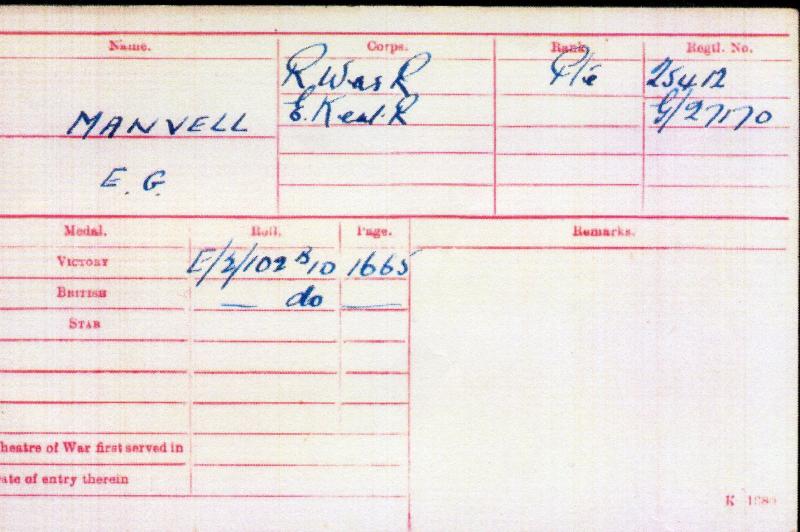 Name. Corps. Rank. Regtl. No.
R. War R Pte 25412
E. Kent. R G/27170
MANVELL
E. G.
Medal. Roll. Page. Remarks.
VICTORY E/2/102 B10 1665
BRITISH — do —
STAR
heatre of War first served in
ate of entry therein
K